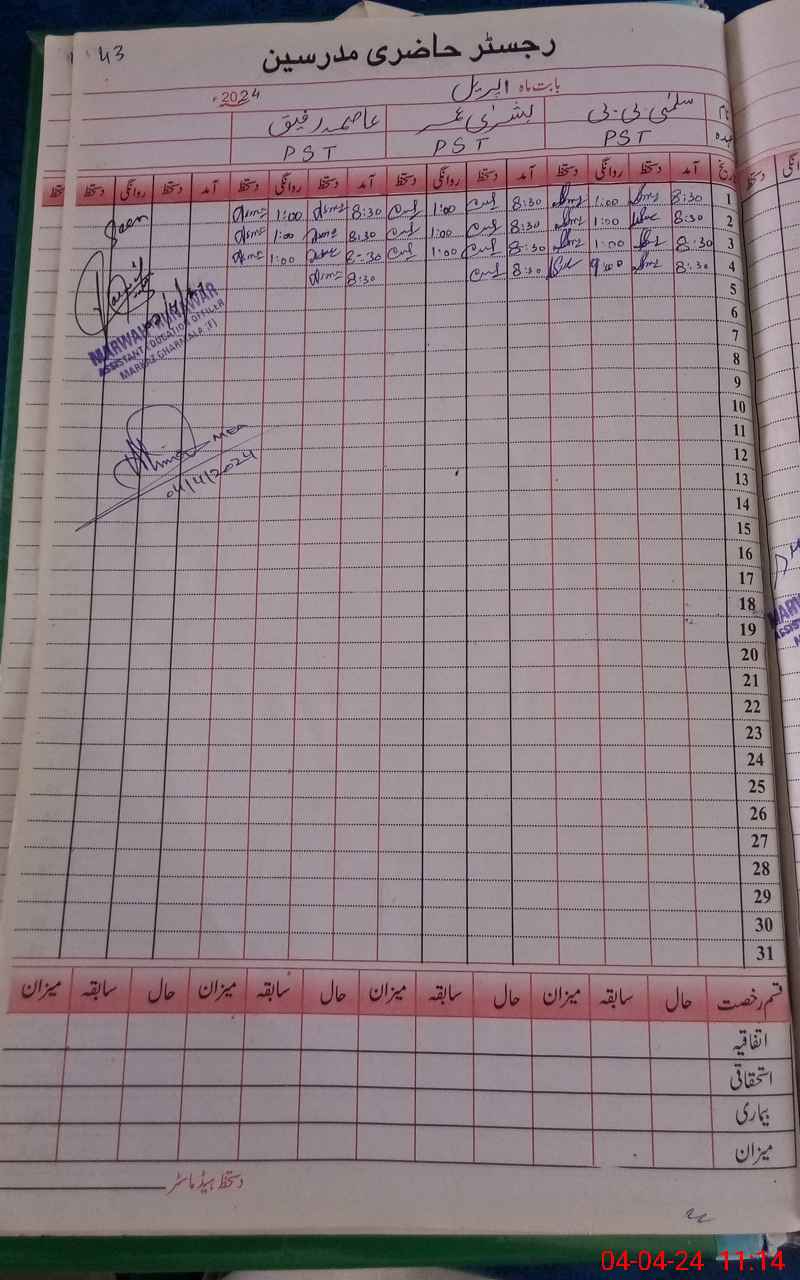 43
رجسٹر حاضری مدرسین
بابت ماہ اپریل 2024ء
نام سلمیٰ بی بی بشریٰ عاصمہ رفیق
عہدہ PST PST PST
تاریخ آمد دستخط روانگی دستخط آمد دستخط روانگی دستخط آمد دستخط روانگی دستخط آمد دستخط روانگی دستخط دستخط
1 8:30 1:00 8:30 1:00 8:30 1:00
2 8:30 1:00 8:30 1:00 8:30 1:00
3 8:30 1:00 8:30 1:00 8:30 1:00
4 8:30 9:00 8:30 8:30
5
6
7
8
9
10
11
12
13
14
15
16
17
18
19
20
21
22
23
24
25
26
27
28
29
30
31
Seen
ASSISTANT EDUCATION OFFICER
MEA
04/4/2024
قسم رخصت حال سابقہ میزان حال سابقہ میزان حال سابقہ میزان حال سابقہ میزان
اتفاقیہ
استحقاقی
بیماری
میزان
دستخط ہیڈ ماسٹر
04-04-24 11:14